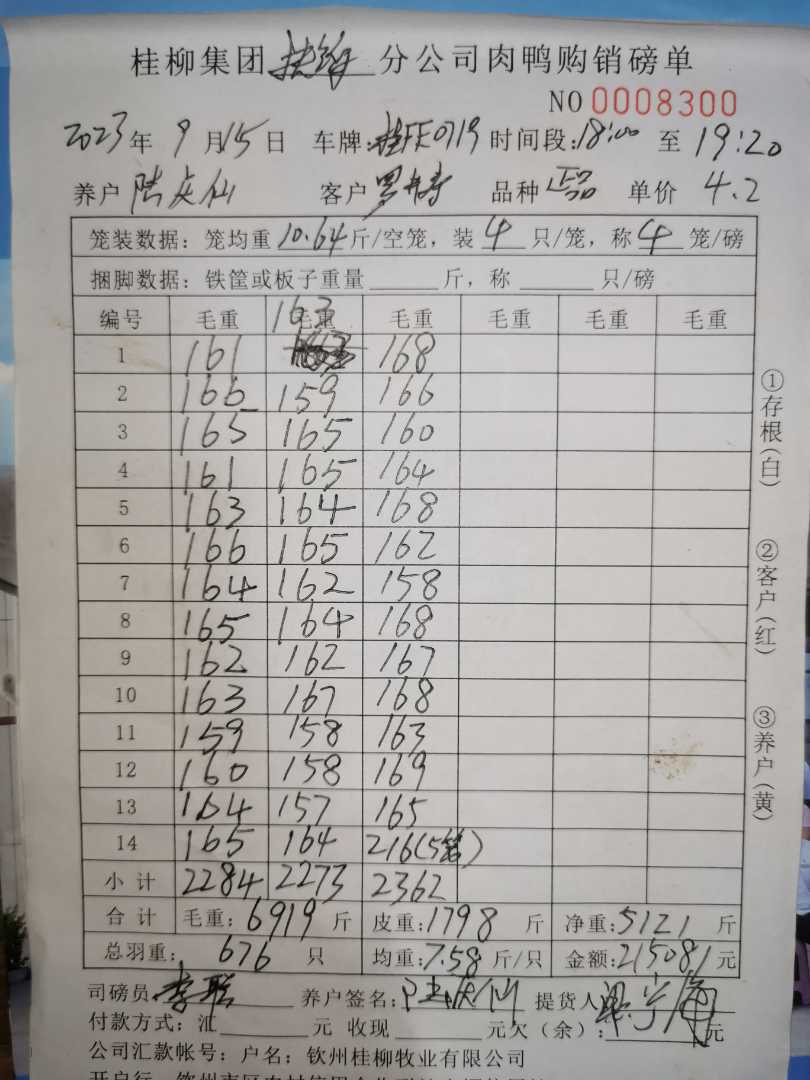 桂柳集团 分公司肉鸭购销磅单
NO 0008300
2023年 9月15日 车牌: 0719 时间段:18:00 至 19:20
养户 陆庆仙 客户 罗 品种 正品 单价 4.2
笼装数据: 笼均重 10.64 斤/空笼, 装 4 只/笼, 称 4 笼/磅
捆脚数据: 铁筐或板子重量 斤, 称 只/磅
163
编号 毛重 毛重 毛重 毛重 毛重 毛重
1 161 168
2 166 159 166
3 165 165 160
4 161 165 164
5 163 164 168
6 166 165 162
7 164 162 158
8 165 164 168
9 162 162 167
10 163 167 168
11 159 158 163
12 160 158 169
13 164 157 165
14 165 164 216(5笼)
小计 2284 2273 2362
合计 毛重: 6919 斤 皮重:1798 斤 净重:5121 斤
总羽重: 676 只 均重:7.58 斤/只 金额:215081元
司磅员 李 养户签名: 陆庆仙 提货人
付款方式: 汇 元 收现 元欠(余): 元
公司汇款帐号: 户名: 钦州桂柳牧业有限公司
①存根(白)
②客户(红)
③养户(黄)